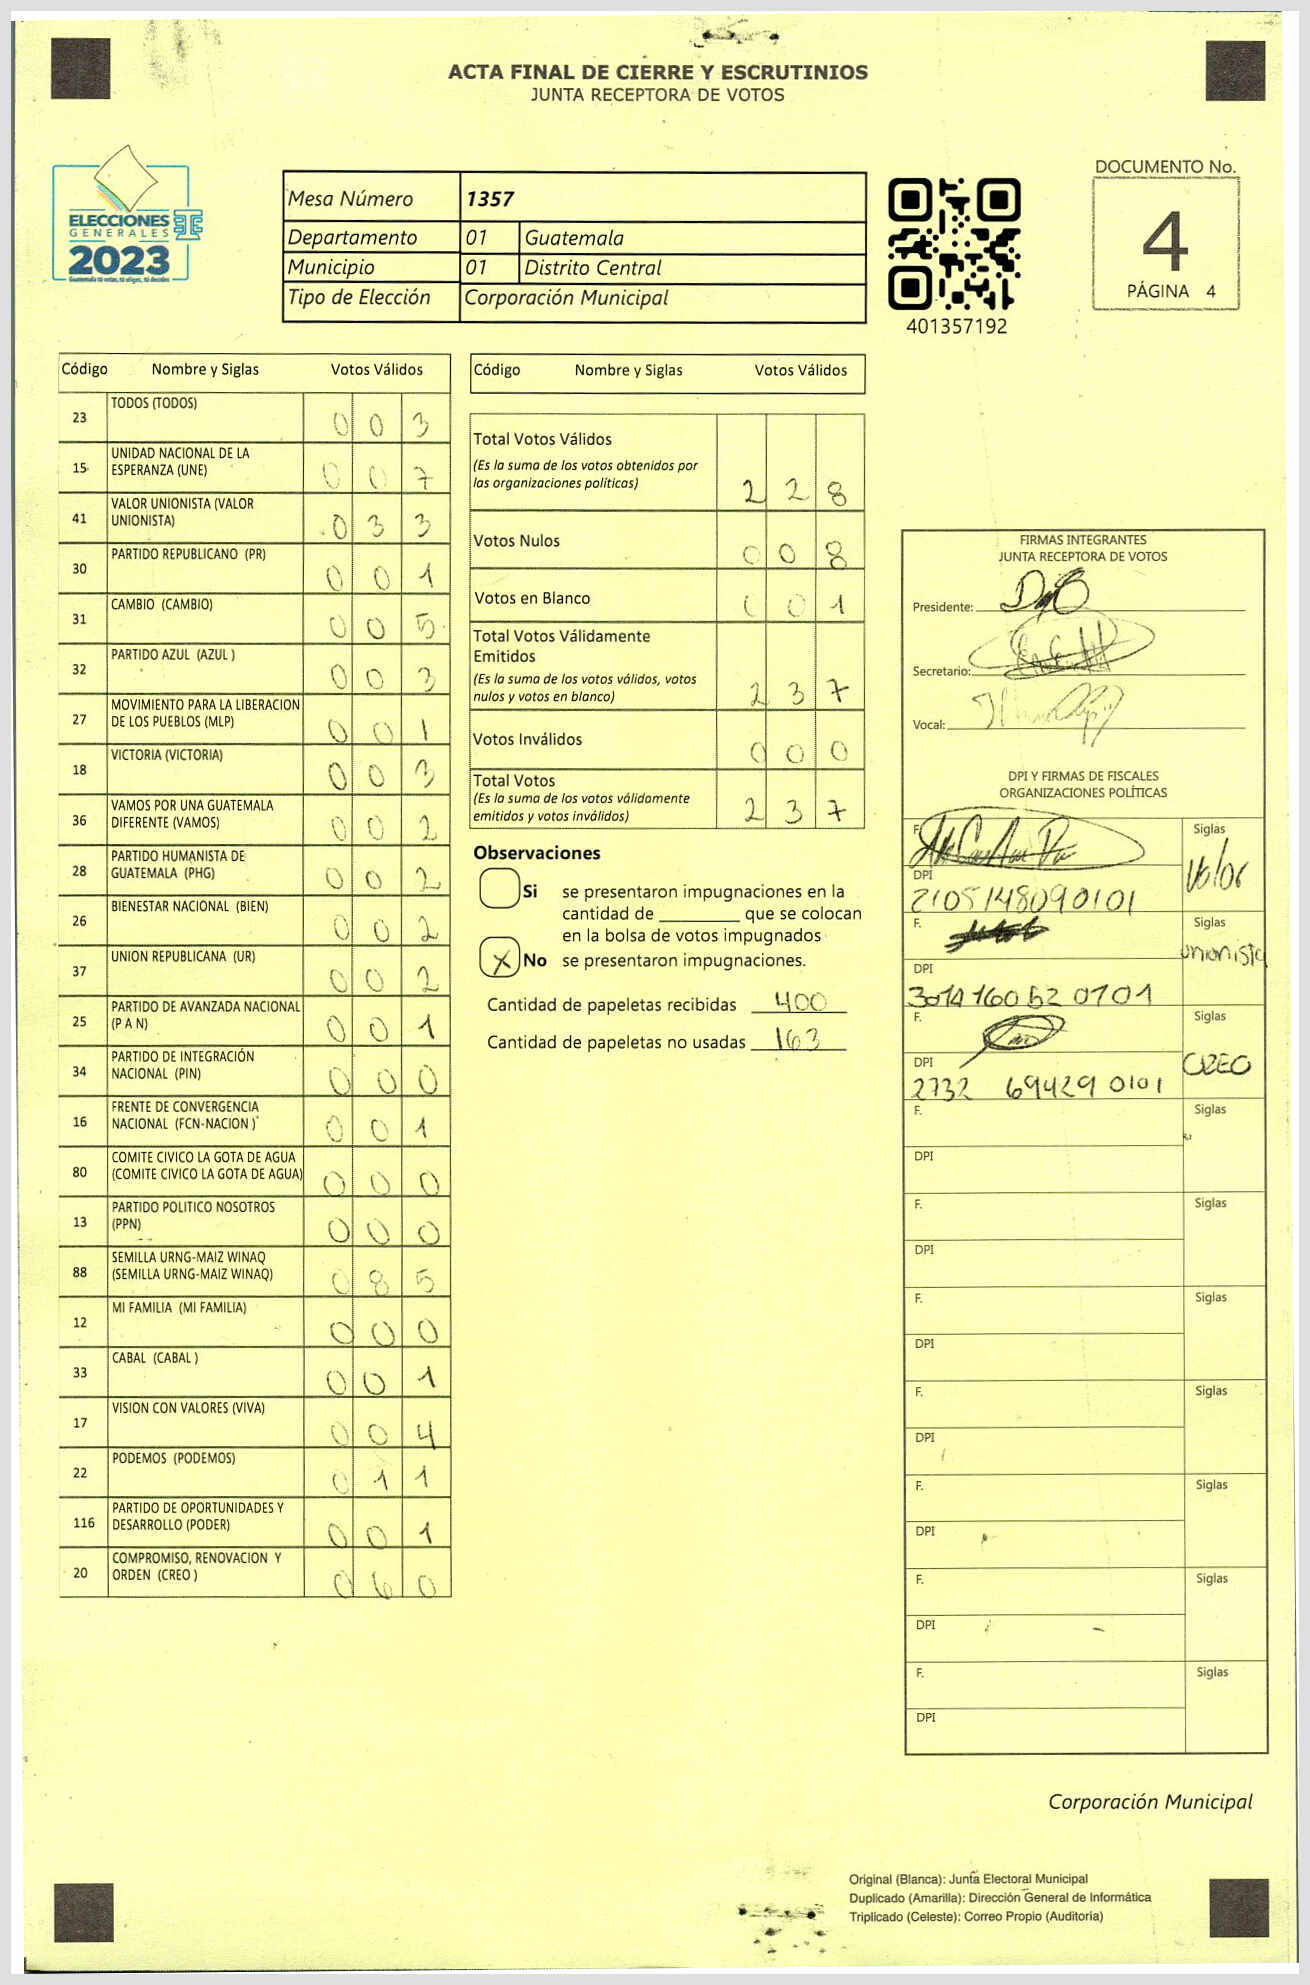 ACTA FINAL DE CIERRE Y ESCRUTINIOS
JUNTA RECEPTORA DE VOTOS
ELECCIONES
GENERALES
2023
Guatemala tú votas, tú eliges, tú decides
Mesa Número 1357
Departamento 01 Guatemala
Municipio 01 Distrito Central
Tipo de Elección Corporación Municipal
401357192
DOCUMENTO No.
4
PÁGINA 4
Código Nombre y Siglas Votos Válidos
23 TODOS (TODOS) 0 0 3
15 UNIDAD NACIONAL DE LA
ESPERANZA (UNE) 0 0 7
41 VALOR UNIONISTA (VALOR
UNIONISTA) 0 3 3
30 PARTIDO REPUBLICANO (PR) 0 0 1
31 CAMBIO (CAMBIO) 0 0 5
32 PARTIDO AZUL (AZUL ) 0 0 3
27 MOVIMIENTO PARA LA LIBERACION
DE LOS PUEBLOS (MLP) 0 0 1
18 VICTORIA (VICTORIA) 0 0 3
36 VAMOS POR UNA GUATEMALA
DIFERENTE (VAMOS) 0 0 2
28 PARTIDO HUMANISTA DE
GUATEMALA (PHG) 0 0 2
26 BIENESTAR NACIONAL (BIEN) 0 0 2
37 UNION REPUBLICANA (UR) 0 0 2
25 PARTIDO DE AVANZADA NACIONAL
(P A N) 0 0 1
34 PARTIDO DE INTEGRACIÓN
NACIONAL (PIN) 0 0 0
16 FRENTE DE CONVERGENCIA
NACIONAL (FCN-NACION ) 0 0 1
80 COMITE CIVICO LA GOTA DE AGUA
(COMITE CIVICO LA GOTA DE AGUA) 0 0 0
13 PARTIDO POLITICO NOSOTROS
(PPN) 0 0 0
88 SEMILLA URNG-MAIZ WINAQ
(SEMILLA URNG-MAIZ WINAQ) 0 8 5
12 MI FAMILIA (MI FAMILIA) 0 0 0
33 CABAL (CABAL ) 0 0 1
17 VISION CON VALORES (VIVA) 0 0 4
22 PODEMOS (PODEMOS) 0 1 1
116 PARTIDO DE OPORTUNIDADES Y
DESARROLLO (PODER) 0 0 1
20 COMPROMISO, RENOVACION Y
ORDEN (CREO ) 0 6 0
Código Nombre y Siglas Votos Válidos
Total Votos Válidos
(Es la suma de los votos obtenidos por
las organizaciones políticas) 2 2 8
Votos Nulos 0 0 8
Votos en Blanco 0 0 1
Total Votos Válidamente
Emitidos
(Es la suma de los votos válidos, votos
nulos y votos en blanco) 2 3 7
Votos Inválidos 0 0 0
Total Votos
(Es la suma de los votos válidamente
emitidos y votos inválidos) 2 3 7
Observaciones
Si se presentaron impugnaciones en la
cantidad de ________ que se colocan
en la bolsa de votos impugnados
X No se presentaron impugnaciones.
Cantidad de papeletas recibidas 400
Cantidad de papeletas no usadas 163
FIRMAS INTEGRANTES
JUNTA RECEPTORA DE VOTOS
Presidente:
Secretario:
Vocal:
DPI Y FIRMAS DE FISCALES
ORGANIZACIONES POLÍTICAS
F. Siglas
DPI
2105148090101
F. Siglas
unionista
DPI
3014160520101
F. Siglas
CREO
DPI
2732 694290101
F. Siglas
DPI
F. Siglas
DPI
F. Siglas
DPI
F. Siglas
DPI
F. Siglas
DPI
F. Siglas
DPI
F. Siglas
DPI
Corporación Municipal
Original (Blanca): Junta Electoral Municipal
Duplicado (Amarilla): Dirección General de Informática
Triplicado (Celeste): Correo Propio (Auditoría)